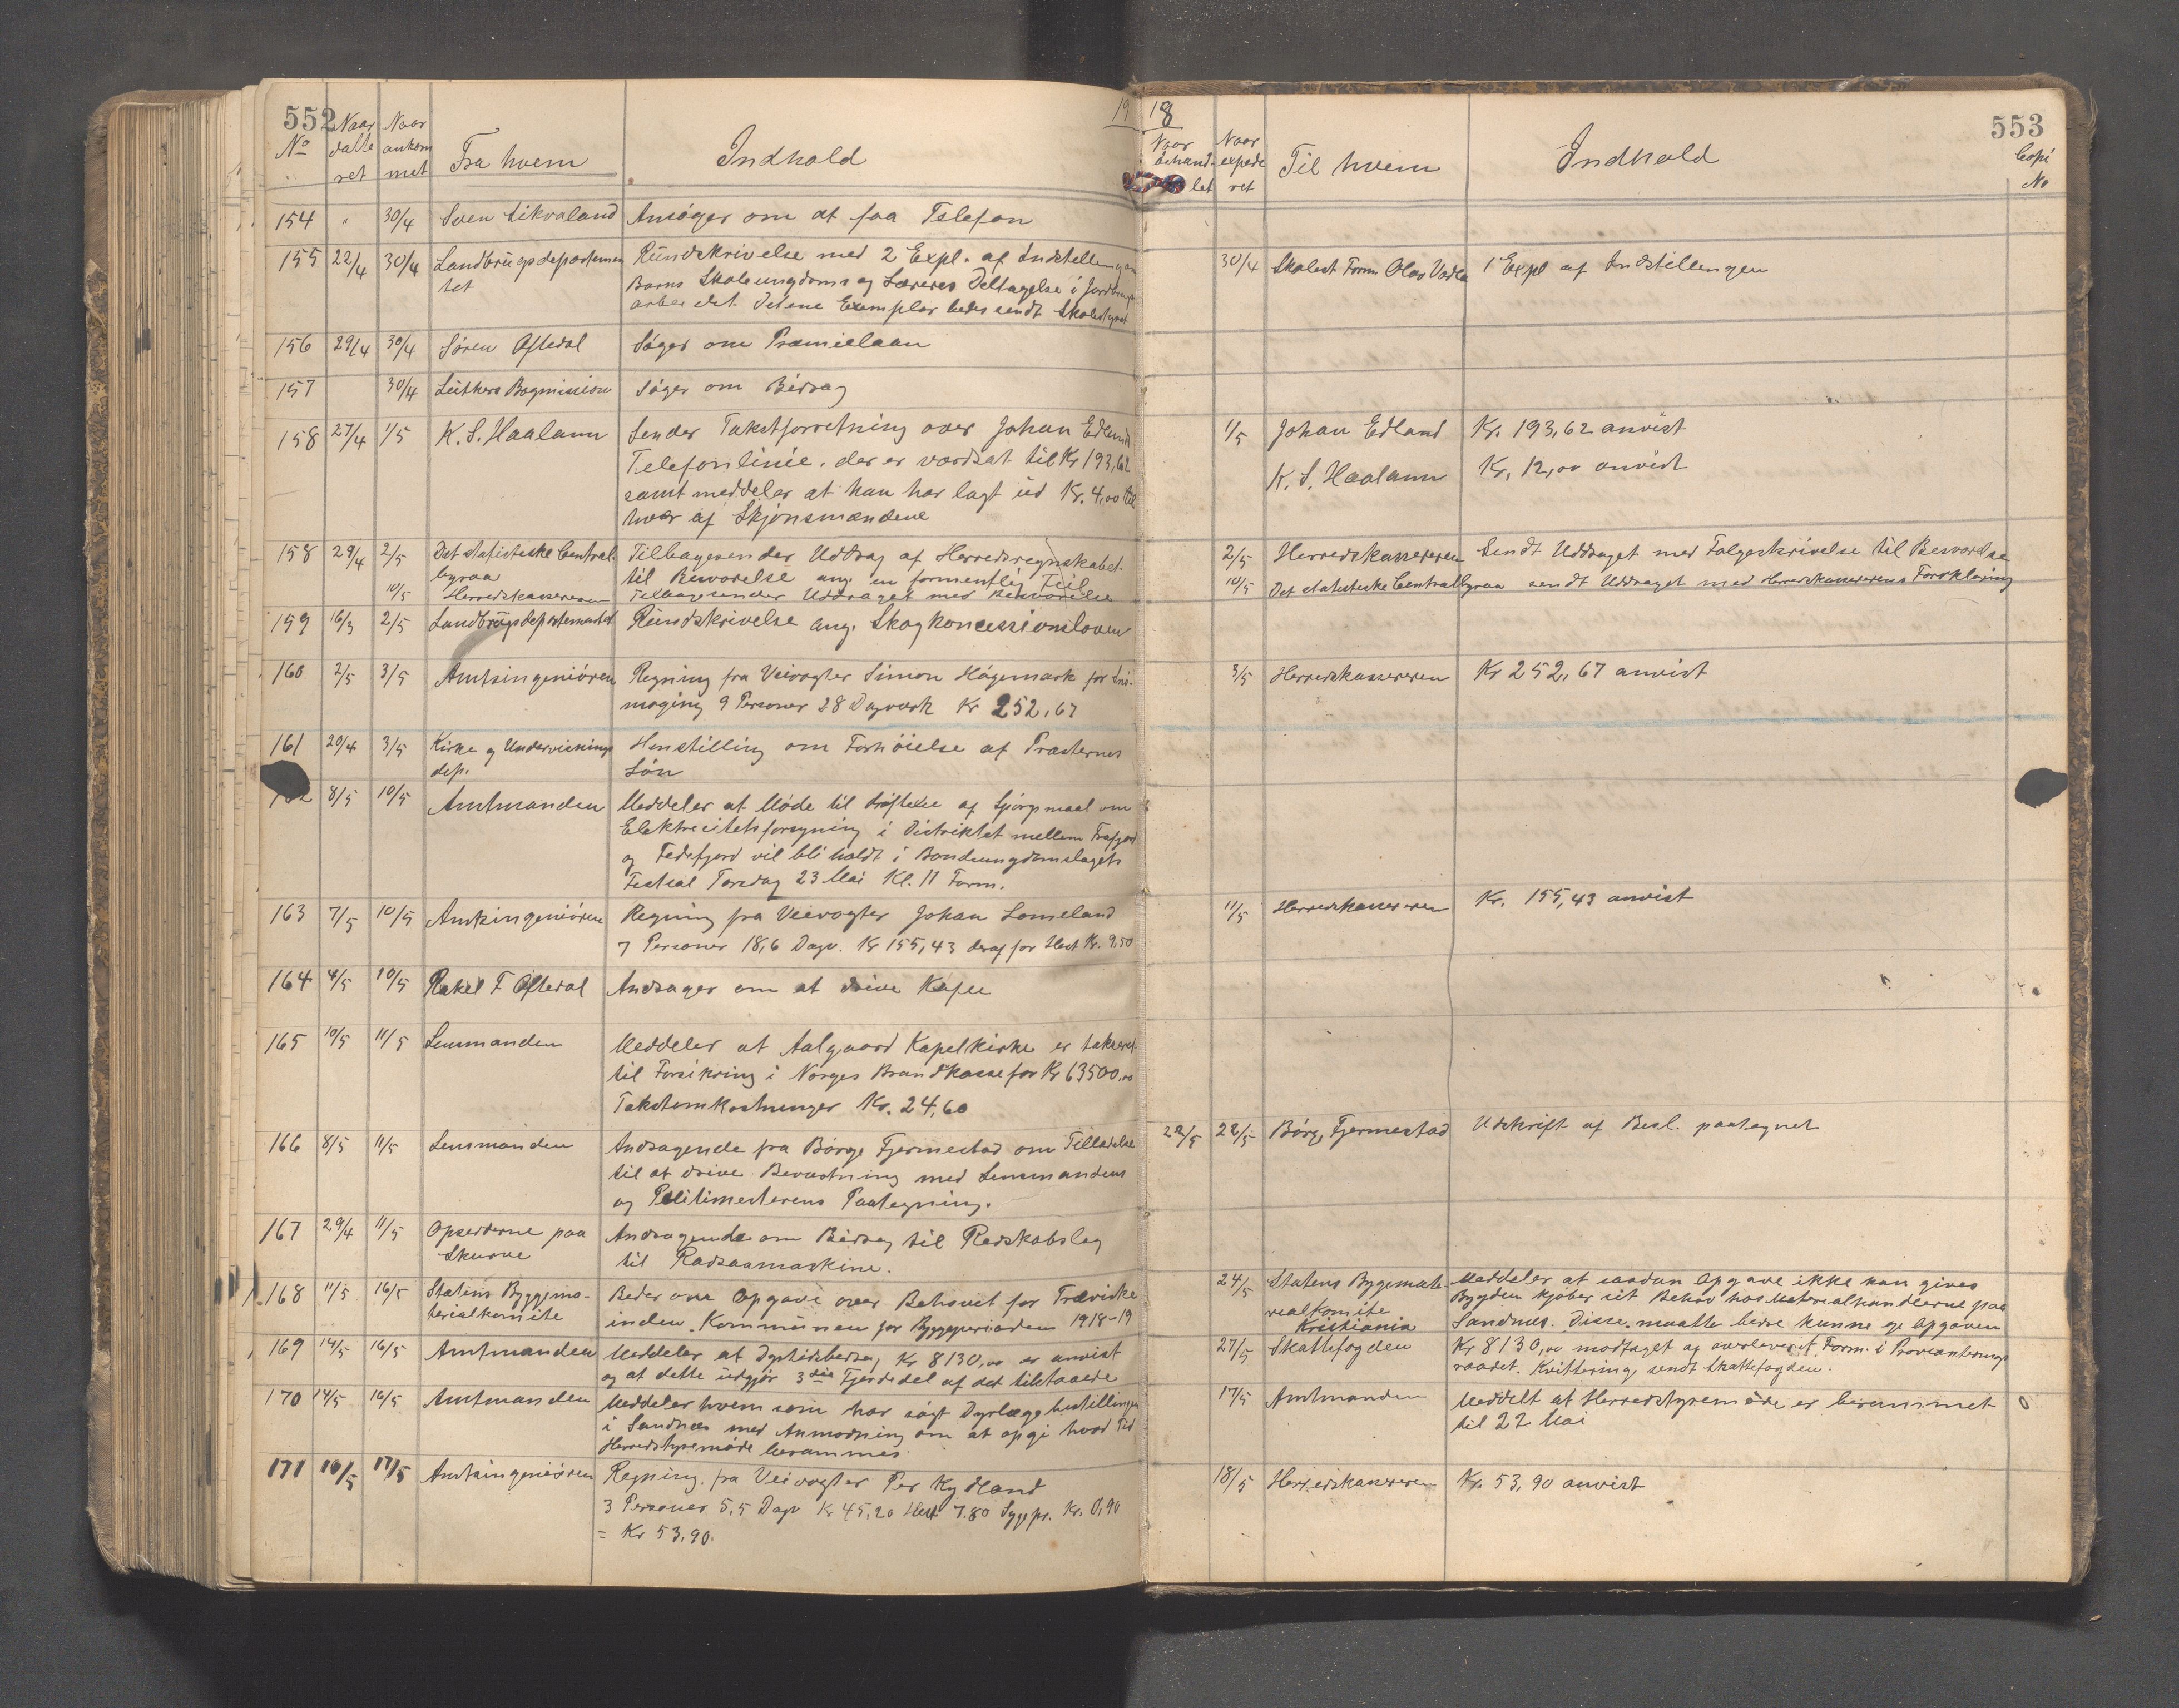 552
19
No
Naar datte ret
Naar ankom met
Fra hvem
Indhold
154 " 30/4 Sven Aikvaland Ansøger om at faa Telefon
155 22/4 30/4 Landbrugsdepartemen Rundskrivelse med 2 Expl. af Indstilling om
tet Barns Skoleungdoms og Læreres Deltagelse i Jordbrugs
arbeidet. Det ene Exemplar bedes sendt Skolestyret
156 29/4 30/4 Søren Oftedal Søger om Præmielaan
157 30/4 Luthers Bogmission Søger om Bidrag
158 27/4 1/5 K. S. Haaland Sender Takstforretning over Johan Edlands
Telefonlinie, der er værdsat til Kr 193,62
samt meddeler at han har lagt ud Kr. 4,00 til
hver af Skjønsmændene
158 29/4 2/5 Det statistiske Central Tilbagesender Uddrag af Herredsregnskabet
byraa til Besvarelse ang. en formentlig Feil
10/5 Herredskassereren Tilbagesender Uddraget med Besvarelse
159 16/3 2/5 Landbrugsdepartementet Rundskrivelse ang. Skogkoncessionsloven
160 2/5 3/5 Amtsingeniøren Regning fra Veivogter Simon Høgemark for Sne-
moging 9 Personer 28 Dagværk Kr 252,67
161 20/4 3/5 Kirke og Undervisnings Henstilling om Forhøielse af Præsternes
dep. Løn
162 8/5 10/5 Amtmanden Meddeler at Møde til drøftelse af Spørgsmaal om
Elektricitetsforsyning i Distriktet mellem Frafjord
og Fedefjord vil bli holdt i Bondeungdomslagets
Festsal Torsdag 23 Mai Kl. 11 Form.
163 7/5 10/5 Amtsingeniøren Regning fra Veivogter Johan Lomeland
7 Personer 18,6 Dagv. Kr 155,43 deraf for Hest Kr. 9,50
164 4/5 10/5 Rakel T Oftedal Andrager om at drive Kafee
165 10/5 11/5 Lensmanden Meddeler at Aalgaard Kapelkirke er takseret
til Forsikring i Norges Brandkasse for Kr 63500,00
Takstomkostninger Kr. 24,60
166 8/5 11/5 Lensmanden Andragende fra Børge Fjermestad om Tilladelse
til at drive Bevertning med Lensmandens
og Politimesterens Paategning.
167 29/4 11/5 Opsidderne paa Andragende om Bidrag til Redskabslag
Skurve til Radsaamaskine.
168 11/5 16/5 Statens Byggema- Beder om Opgave over Behovet for Trævirke
terialkomite inden Kommunen for Byggeperioden 1918-19
169 14/5 16/5 Amtmanden Meddeler at Dyrtidsbidrag Kr 8130,00 er anvist
og at dette udgjør 3die Fjerdedel af det tilstaaede
170 14/5 16/5 Amtmanden Meddeler hvem som har søgt Dyrlægebestillingen
i Sandnes med Anmodning om at opgi hvad Tid
Herredstyremøde berammes
171 16/5 17/5 Amtsingeniøren Regning fra Veivogter Per Kydland
3 Personer 5,5 Dagv Kr 45,20 Hest 7.80 Sygepr. Kr. 0,90
= Kr 53.90.
18
553
Naar behand let
Naar expede ret
Til hvem
Indhold
Copi No
30/4 Skolest Form Olav Vadla 1 Expl af Indstillingen
1/5 Johan Edland Kr. 193,62 anvist
K. S. Haaland Kr. 12,00 anvist
2/5 Herredskassereren Sendt Uddraget med Følgeskrivelse til Besvarelse
10/5 Det statistiske Centralbyraa sendt Uddraget med Herredskassererens Forklaring
3/5 Herredskassereren Kr 252,67 anvist
11/5 Herredskassereren Kr. 155,43 anvist
22/5 22/5 Børge Fjermestad Udskrift af Besl. paategnet
24/5 Statens Bygemate- Meddeler at saadan Opgave ikke kan gives
rialkomite Bygden kjøber sit Behov hos Materialhandlerne paa
Kristiania Sandnes. Disse maatte bedre kunne gi Opgaven
27/5 Skattefogden Kr 8130,00 modtaget og overleveret Form. i Provianterings
raadet. Kvittering sendt Skattefogden.
17/5 Amtmanden Meddelt at Herredstyremøde er berammet
til 22 Mai
18/5 Herredskassereren Kr. 53,90 anvist